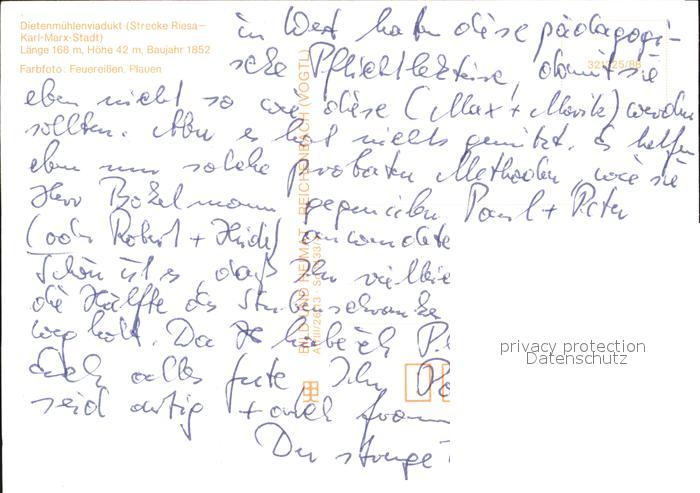 Dietenmühlenviadukt (Strecke Riesa—
Karl-Marx-Stadt)
Länge 168 m, Höhe 42 m, Baujahr 1852
Farbfoto: Feuereißen, Plauen
in West haben diese pädagogi-
sche Pflichtlektüre, damit sie
eben nicht so wie diese (Max + Moritz) werden
sollten. Aber es hat nichts genützt. Es helfen
eben nur solche probaten Methoden, wie sie
Herr Bokelmann gegenüber Paul + Peter
(oder Robert + Heide) anwendete
Schön ist es, daß Ihr vielleic
die Hälfte des Stubenschranke
weg holt. Da habe ich P.
Euch alles gute Ihr
seid artig + auch fromm
Der strenge
BILD UND HEIMAT REICHENBACH (VOGTL)
privacy protection
Datenschutz